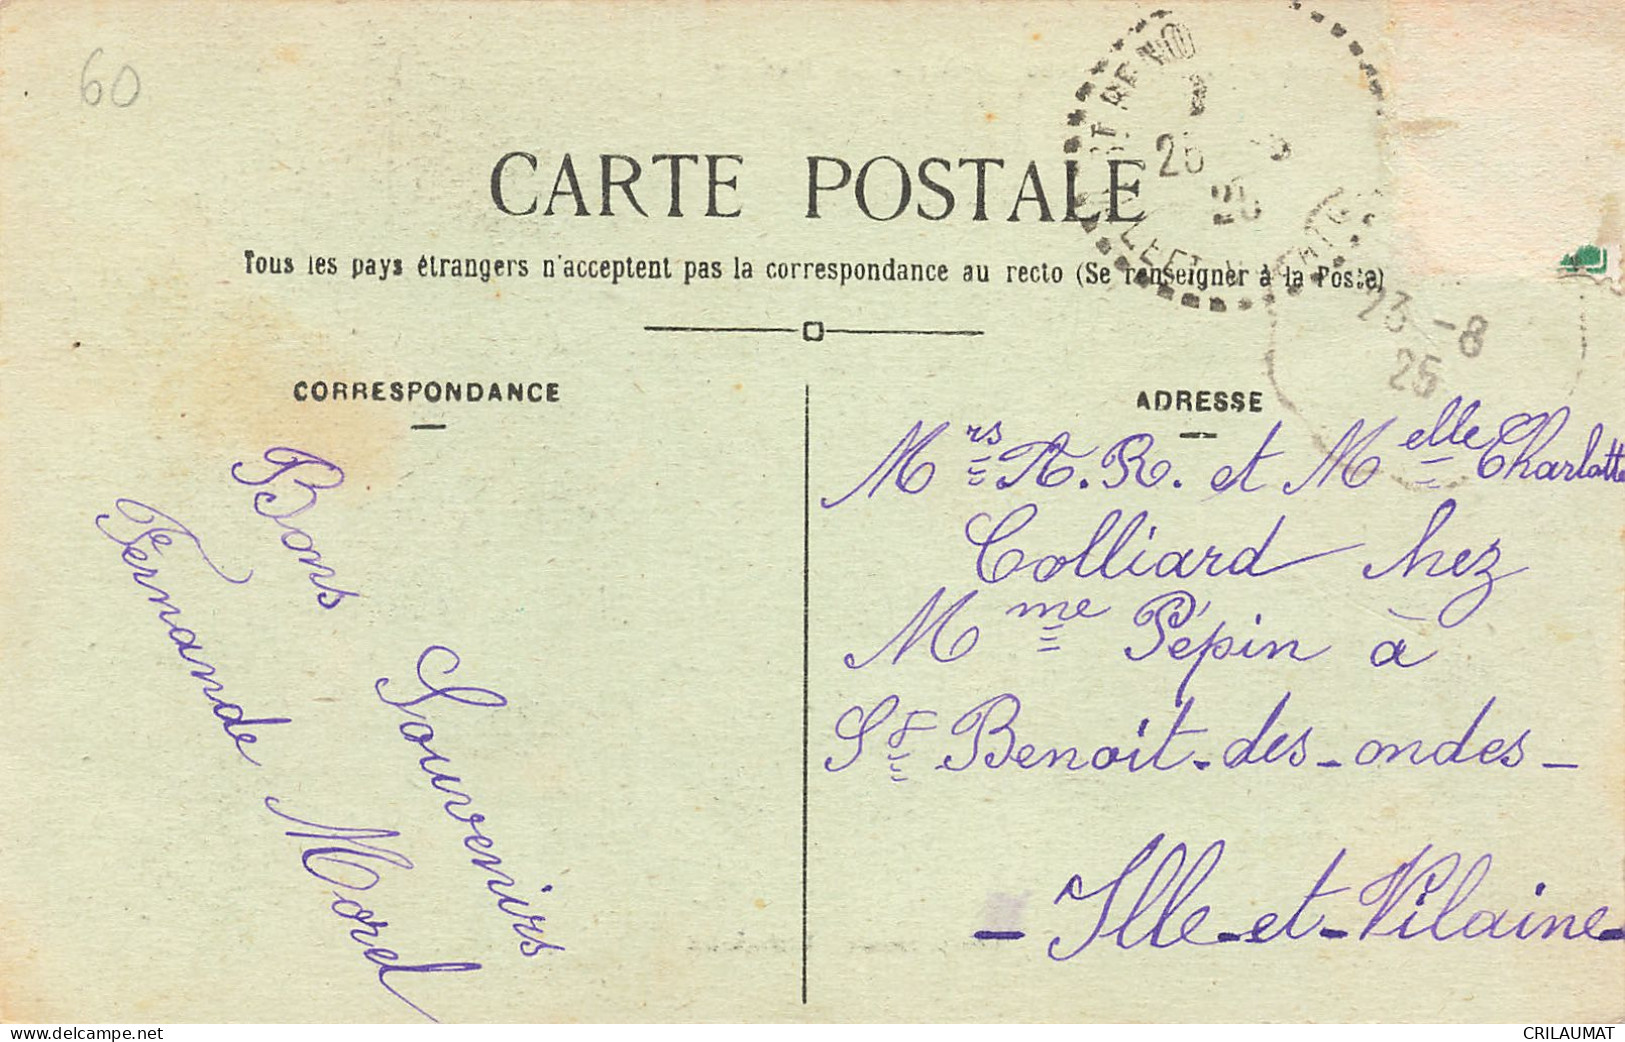 60
CARTE POSTALE
Tous les pays étrangers n'acceptent pas la correspondance au recto (Se renseigner à la Poste)
CORRESPONDANCE
Bons Souvenirs
Fernande Morel
ADRESSE
23 -8
25
Mrs A. R. et Melle Charlotte
Colliard chez
Mme Pépin à
St Benoit-des-ondes-
- Ille-et-Vilaine-
www.delcampe.net
CRILAUMAT